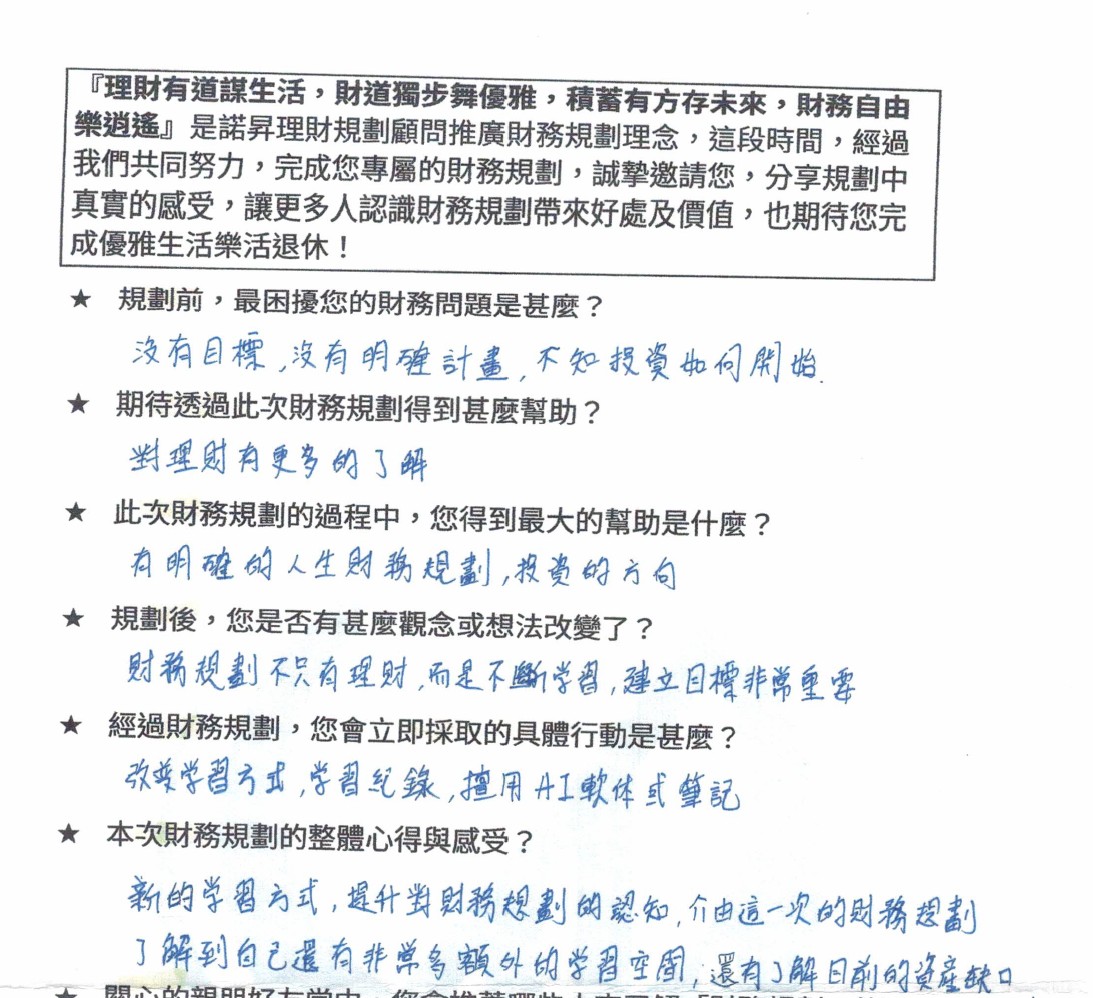 『理財有道謀生活，財道獨步舞優雅，積蓄有方存未來，財務自由
樂逍遙』是諾昇理財規劃顧問推廣財務規劃理念，這段時間，經過
我們共同努力，完成您專屬的財務規劃，誠摯邀請您，分享規劃中
真實的感受，讓更多人認識財務規劃帶來好處及價值，也期待您完
成優雅生活樂活退休！
★ 規劃前，最困擾您的財務問題是甚麼？
沒有目標,沒有明確計畫,不知投資如何開始.
★ 期待透過此次財務規劃得到甚麼幫助？
對理財有更多的了解
★ 此次財務規劃的過程中，您得到最大的幫助是什麼？
有明確的人生財務規劃,投資的方向
★ 規劃後，您是否有甚麼觀念或想法改變了？
財務規劃不只有理財,而是不斷学習,建立目標非常重要
★ 經過財務規劃，您會立即採取的具體行動是甚麼？
改变学習方式,学習紀錄,擅用AI軟体或筆記
★ 本次財務規劃的整體心得與感受？
新的学習方式,提升對財務規劃的認知,介由這一次的財務規劃
了解到自己還有非常多額外的学習空間,還有了解目前的資產缺口